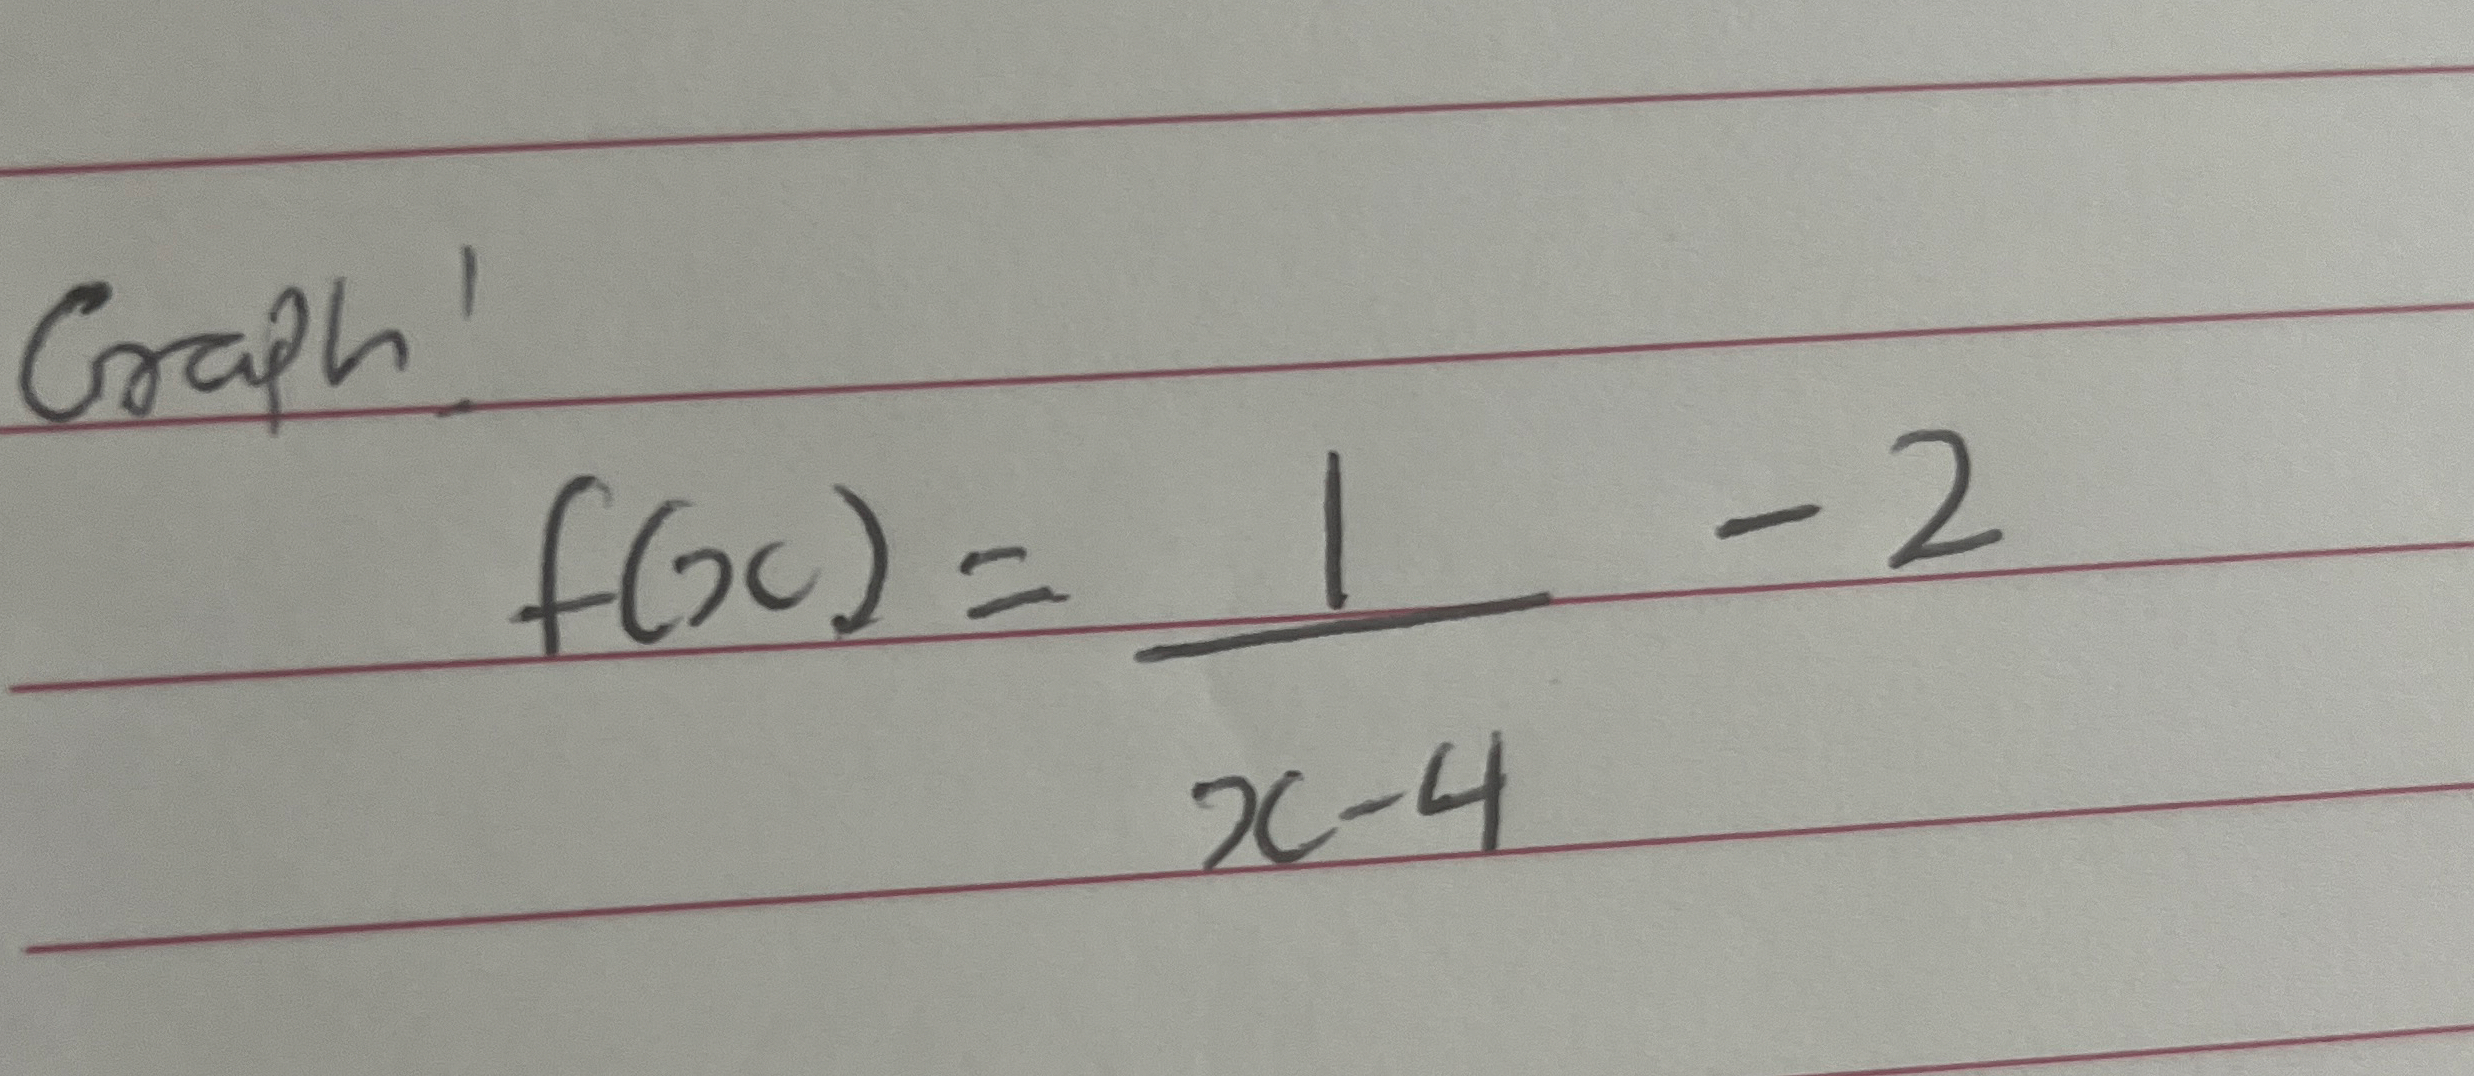 Graph!
f(x) = 1/(x-4) - 2